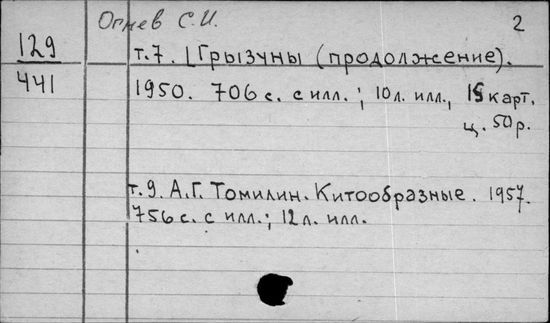 Огнев С.И.
2
129
441
т.7. Грызуны (продолжение).
1950. 706 с. с илл.; 10 л. илл., 15 карт.
ц. 50 р.
т.9. А.Г. Томилин. Китообразные. 1957.
756 с. с илл.; 12 л. илл.